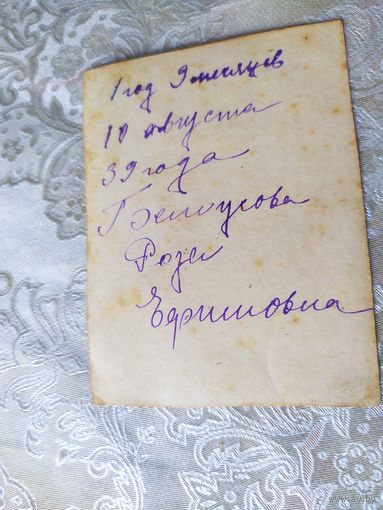 1 год 9 месяцев
10 августа
39 года
Белоусова
Роза
Ефимовна